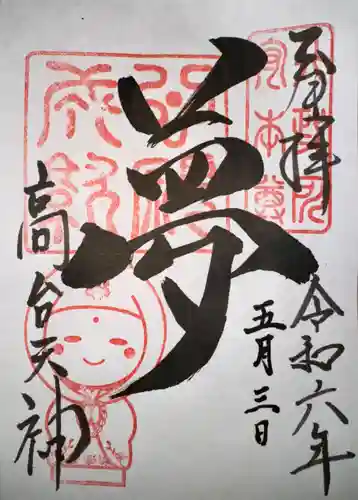 奉拝
令和六年
五月三日
夢
高台天神